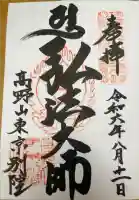 奉拝
令和六年八月十二日
弘法大師
高野山東京別院